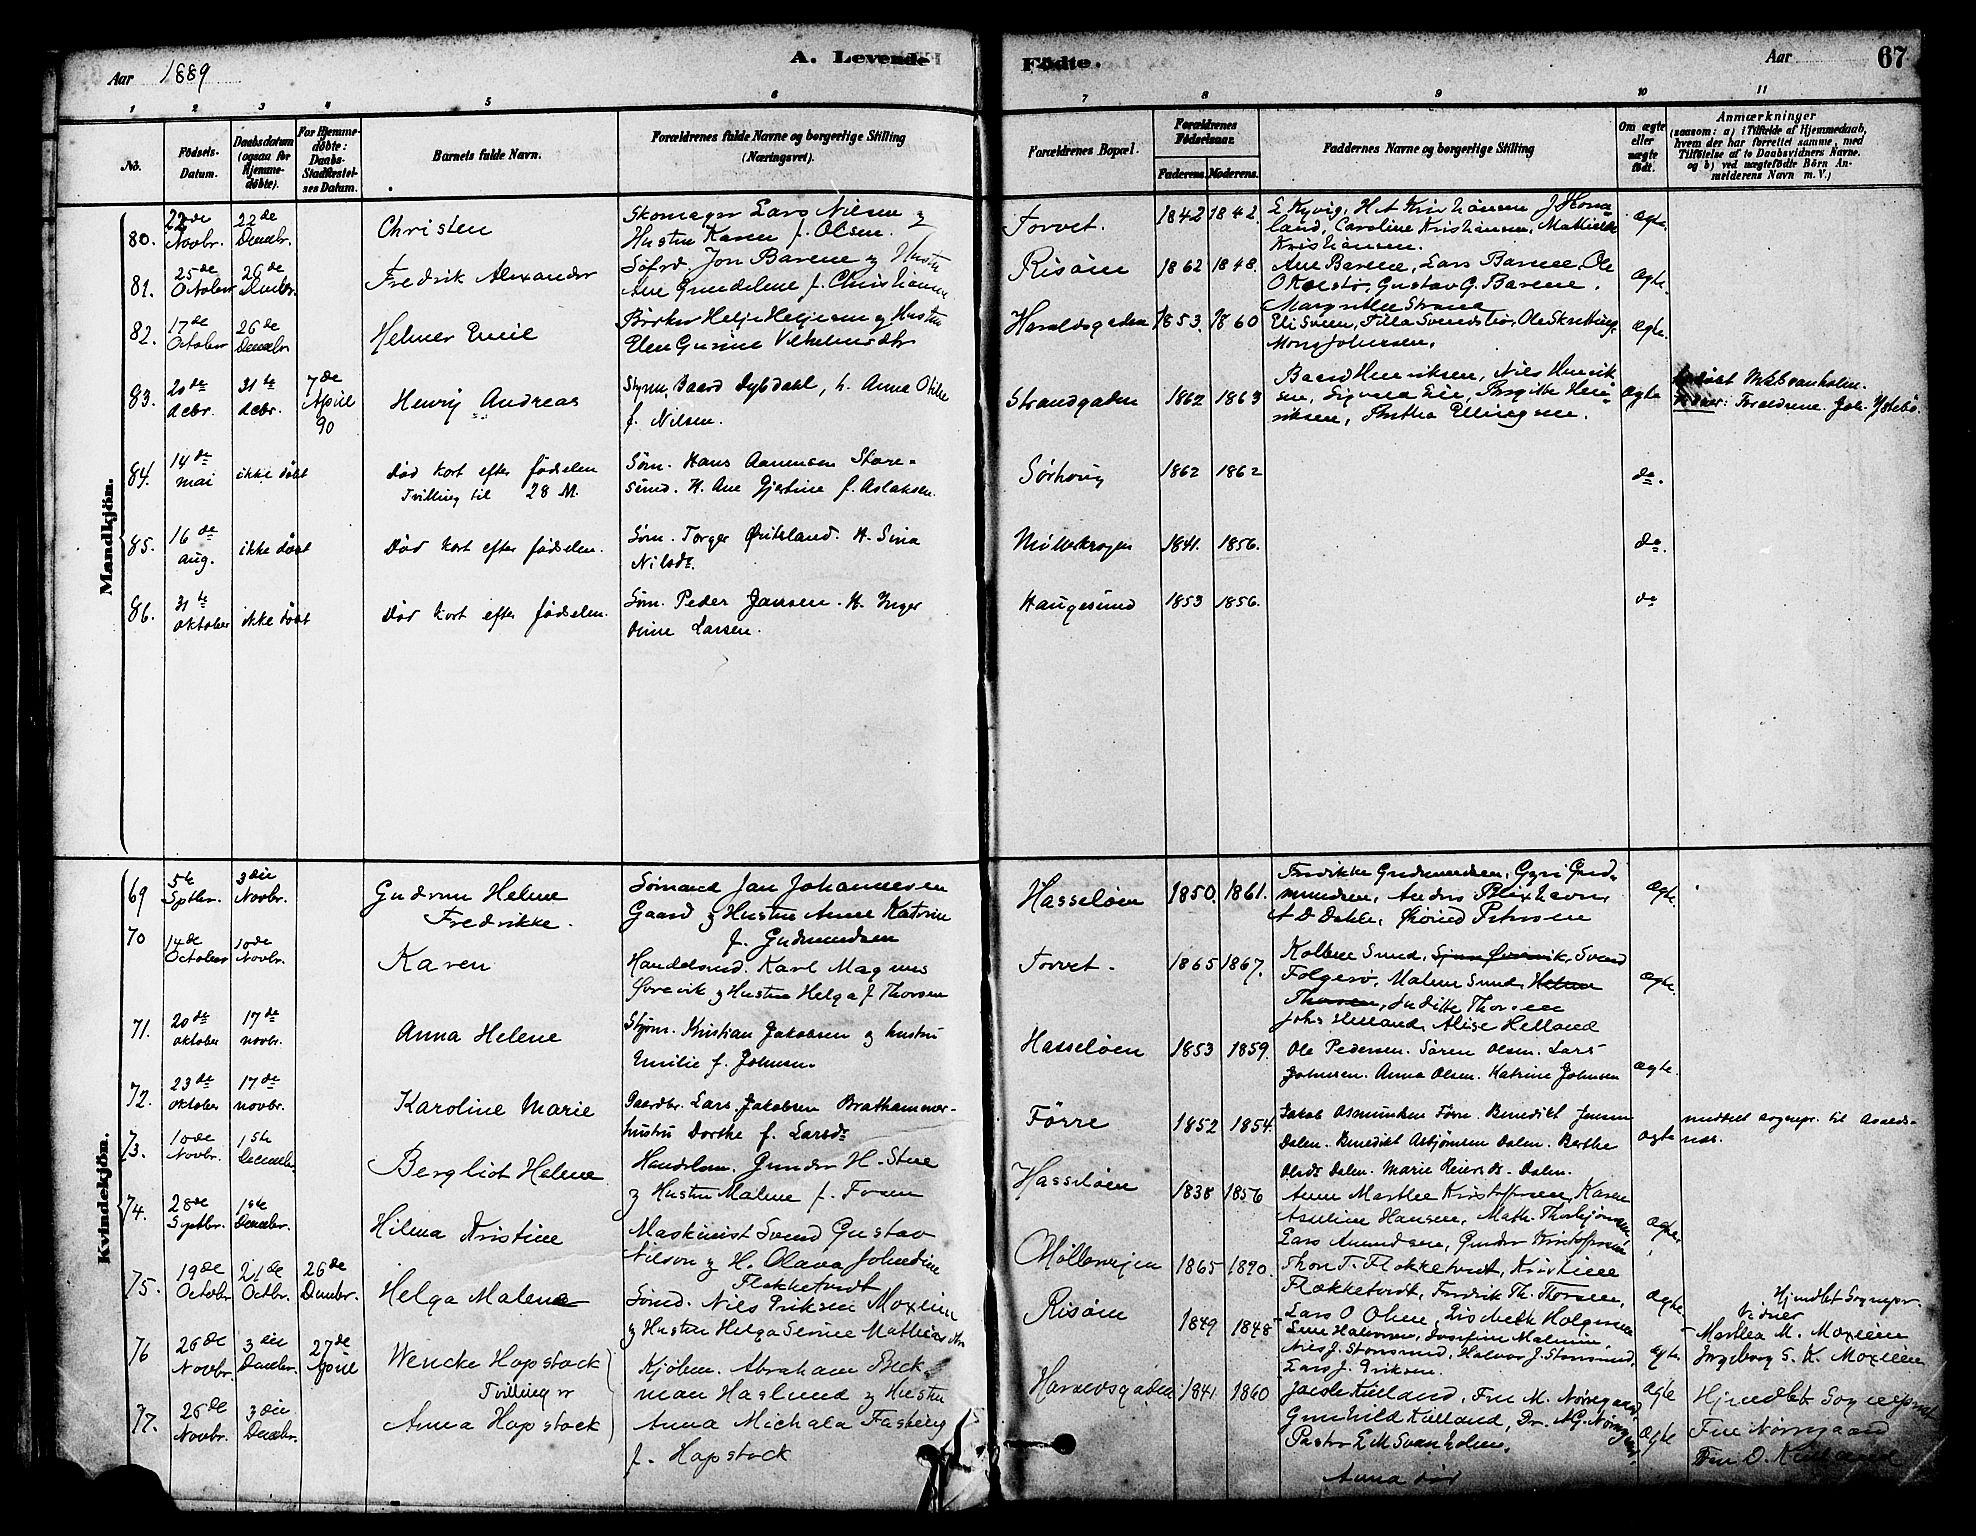 Aar 1889
A. Levende
Fødte.
Aar
67
1 2 3 4 5 6 7 8 9 10 11
No.
Fødsels-Datum.
Daabsdatum (ogsaa for Hjemme-døbte).
For Hjemme-døbte: Daabs-Stadfæstel-ses Datum.
Barnets fulde Navn.
Forældrenes fulde Navne og borgerlige Stilling (Næringsvei).
Forældrenes Bopæl.
Forældrenes Fødselsaar.
Faderens. Moderens.
Faddernes Navne og borgerlige Stilling
Om ægte eller uægte født.
Anmærkninger
(saasom: a) i Tilfælde af Hjemmedaab, hvem der har forrettet samme, med Tilføielse af to Daabsvidners Navne. og b) ved uægtefødte Børn Anmelderens Navn m. V.)
Mandkjøn.
80. 22de Novbr. 22de Decebr. Christen
Skomager Lars Nilsen og
Hustru Karen f. Olsen.
Torvet. 1842 1842.
E Kyvig, H A Kristiansen J Hona-
land, Caroline Kristiansen, Mathilde
Kristiansen.
ægte.
81. 25de October 26de Decbr. Fredrik Alexander
Søfrd Jon Barene og Hustru
Ane Gundeline f. Christiansen
Risøen 1862 1848.
Ane Barene, Lars Barene, Ole
O Kolstø, Gustav G. Barene.
Margrethe Strand
ægte.
82. 17de October 26de Decebr Helmer Emil
Bødker Helje Heljesen og Hustru
Elen Gurine Vilhelmsdtr
Haraldsgaden 1853. 1860
Eli Sveen, Tilla Svendsbø, Ole Skretting
Mons Johnsen.
ægte.
83. 20de decbr. 31te decbr. 7de April 90 Henrij Andreas
Styrm. Baard Dybdahl, h. Anne Otilie
f. Nilsen.
Strandgaden 1862 1863
Baard Henriksen, Nils Henrik-
sen, Sigvald Lie, Birgitte Hen-
riksen, Thrktha Ellingsen.
Ægte
Hjdøbt v. E M Svanholm.
Vidner: Forældrene. Joh. Ystebø.
84. 14de mai ikke døbt Død kort efter fødselen
Tvilling til 28 M.
Søm. Hans Aanensen Store-
sund. H. Ane Gjertine f. Aslaksen.
Sørhoug 1862 1862
do.
85. 16de aug. ikke døbt Død kort efter fødselen.
Søm. Torger Øritsland. H. Sina
Nilsdr.
Møllekrogen 1841. 1856.
do.
86. 31te oktober ikke døbt Død kort efter fødselen.
Søm. Peder Jansen. H. Inger
Oline Larsen.
Haugesund 1853 1856.
do
Kvindekjøn.
69 5te Sptbr. 3die Novbr. Gudrun Helene
Fredrikke.
Sømand Jan Johannesen
Gaard og Hustru Anne Katrine
f. Gudmundsen
Hasseløen 1850. 1861.
Fredrikke Gudmundsen, Gyri Gud-
mundsen, Anders Blixhavn
A D Dahle, Øivind Petersen
ægte.
70 14de October 10de Novbr. Karen
Handelsmd. Karl Magnus
Øvrevik og Hustru Helga f Thorsen
Torvet. 1865 1867.
Kolbene Sund, Svend
Folgerø, Malene Sund
Thorsen, Juditte Thorsen
Johs Helland, Alise Helland
ægte.
71. 20de oktober 17de novbr. Anna Helene
Styrm. Kristian Jakobsen og hustru
Emilie f. Johnsen.
Hasseløen 1853 1859.
Ole Pedersen. Søren Olsen. Lars
Johnsen. Anna Olsen. Katrine Johnsen
ægte.
72. 23de oktober 17de novbr. Karoline Marie
Gaardbr. Lars Jakobsen Brathammer.
hustru Dorthe f. Larsdr
Førre 1852 1854.
Jakob Osmundsen Førre. Benedikt Jensen
Dalen. Benedikt Asbjørnsen Dalen. Berthe
Olsdr Dalen. Marie Reiersdr. Dalen.
ægte
meddelt sognepr. til Avalds-
nes.
73. 10de Novbr. 1ste Decembr. Bergliot Helene
Handelsm. Gunder H. Stue
og Hustru Malene f. Fosen
Hasseløen 1838 1856
Anne Marthe Kristoffersen, Karen
Aseline Hansen, Math. Thorbjørnsen
Lars Amundsen, Gunder Kristoffersen
ægte
74. 28de Septbr. 1ste Decebr. Hilma Kristine
Maskinist Svend Gustav
Nilson og H. Olava Johndine
Flokketvedt
Møllevejen 1865 1870.
Thon T. Flokketvedt, Kristine
Flokketvedt, Fredrik Th. Thorsen,
Lars O Olsen, Lisbeth Holgersen
ægte
75. 19de October 21de Octbr. 26de Decembr. Helga Malene
Sømd. Niels Eriksen Moxeien
og Hustru Helga Serine Mathias dtr
Risøen 1849 1848
Lene Halvorsen, Josefine Malmin
Nils J. Storesund, Halvor J. Storesund,
Lars J. Eriksen.
ægte
Hjmdøbt Sognepr.
Vidner
Marthea M. Moxeien
Ingeborg S. K. Moxeien
76 26de Novbr. 3die Decembr. 27de April Wencke Hopstock
Tvillinger
77. 26de Novbr. 3die Decebr. Anna Hopstock
Kjøbm. Abraham Beck-
man Haslund og Hustru
Anna Michala Fasberg
f. Hopstock
Haraldsgaden 1841. 1860
Jacob Kielland, Fru M. Nørregaard,
Gunhild Kielland, Dr. A G. Nørregaard,
Pastor E M Svanholm.
Anna død
ægte
ægte
Hjmdøbt Sognepræst
Fru Nørregaard
Fru D. Kielland